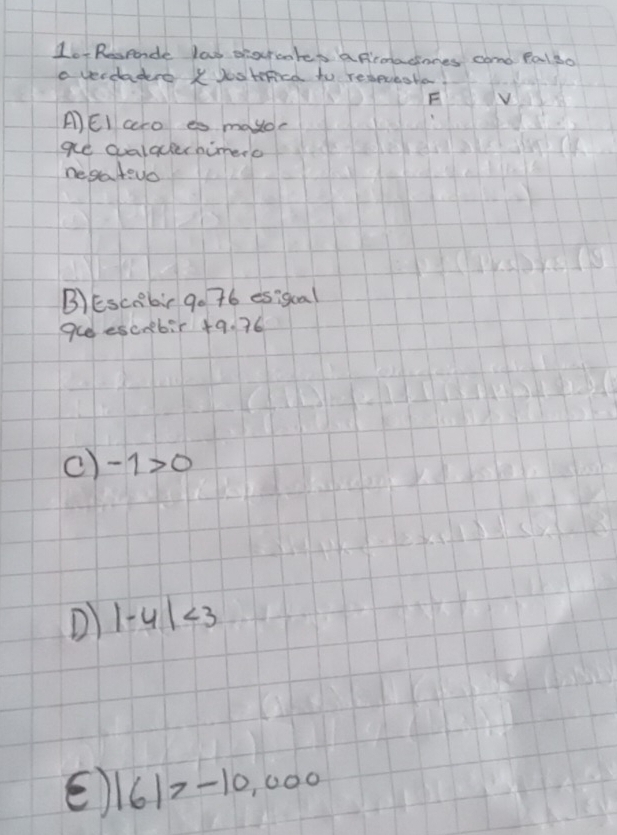 1.-Responde las siguientes afirmaciones como falso
o verdadero y justifica tu respuesta.
F V
A) El cero es mayor
que cualquier número
negativo
B) Escribir 9.76 es igual
que escribir +9.76
C) -1>0
D) |-4|<3
E) |6|>-10,000